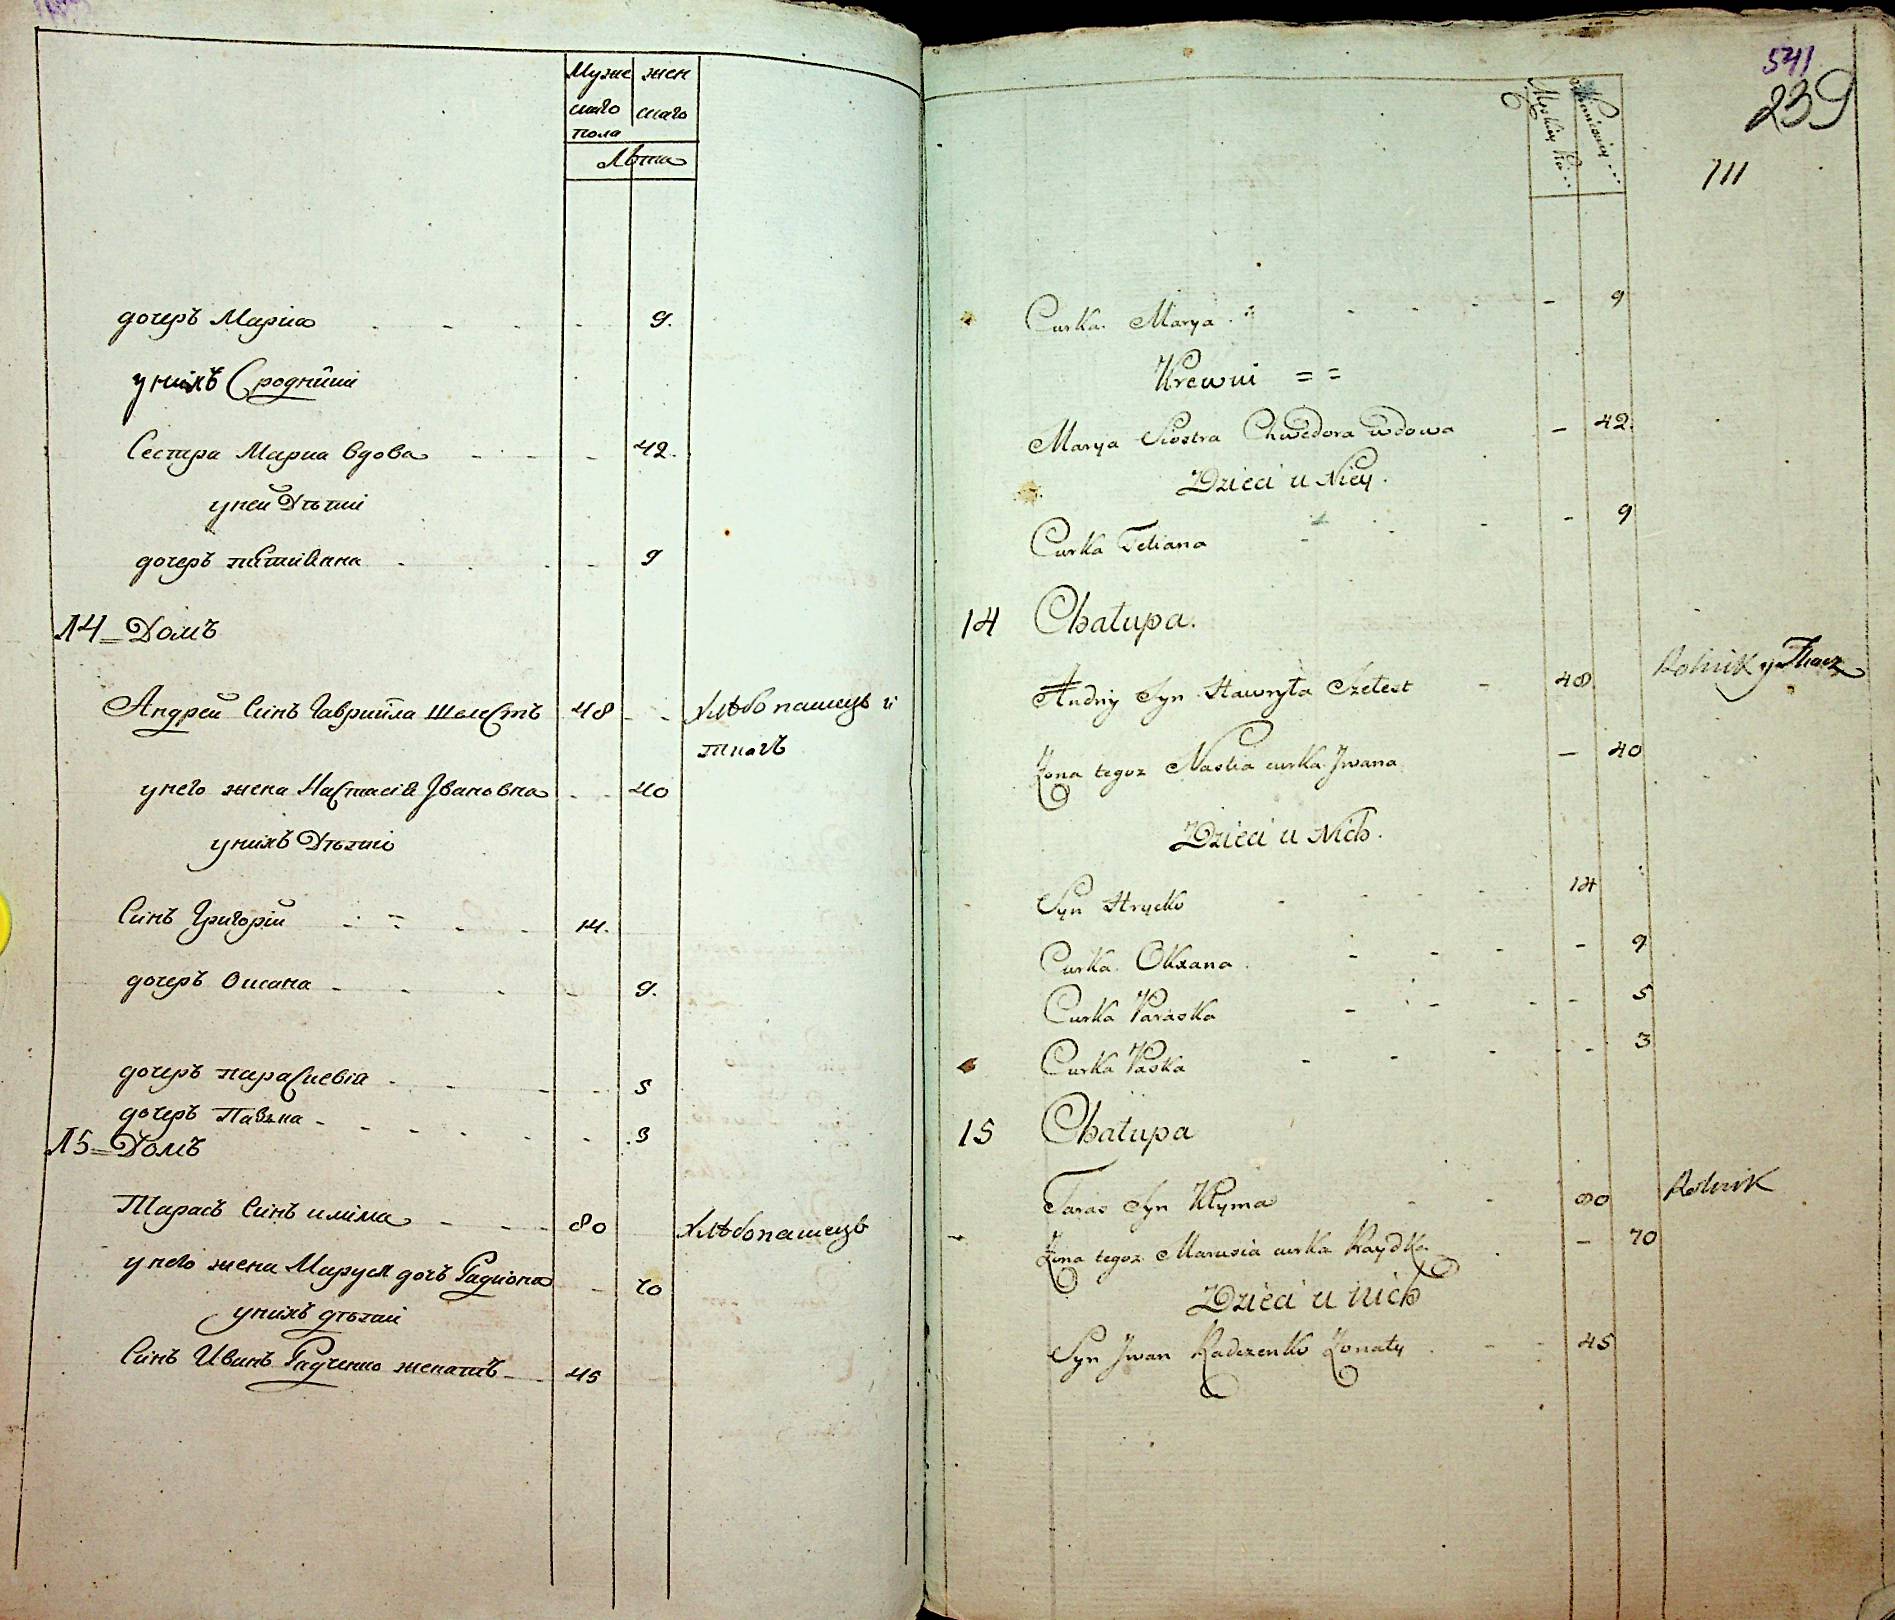 Муже жен
скаго скаго
пола
Лѣта
дочеръ Мариа - - - 9.
унихъ Сродники
Сестра Мариа вдова - - - 42.
уней Дѣтки
дочеръ татианна - - - 9
14 = Домъ
Андрей Синъ Гаврийла Шелестъ 48 - - хлѣбопашецъ и
ткачъ
унего жена Настасія Јвановна - - 40
унихъ Дѣтки
Синъ Григорій - = - - 14.
дочеръ Оксана - - - - 9.
дочеръ параскевія - - - - 5
дочеръ Павзка - - - - - .3
15 = Домъ
Тарасъ Синъ клима - - - 80 хлѣбопашецъ
унего жена Маруся дочъ Радиона - 70
унихъ дѣткы
Синъ Иванъ Радченко женатъ - 45
541
239
111
Curka Marya - - - - 9
Krewni = =
Marya Siostra Chwedora wdowa - 42.
Dzieci u Niey.
Curka Tetiana - - - - 9
14 Chałupa.
Andriy Syn Hawryła Szelest - 48 Rolnik y Tkacz
Żona tegoz Nastia curka Jwana - 40
Dzieci u Nich.
Syn Hrycko - - - 14
Curka Oksana - - - - 9
Curka Paraska - - - - 5
Curka Paska - - - - 3
15 Chałupa
Taras Syn Kłyma - - 80 Rolnik
Żona tegoz Marusia curka Raydka - 70
Dzieci u nich
Syn Jwan Radczenko Żonaty - - 45